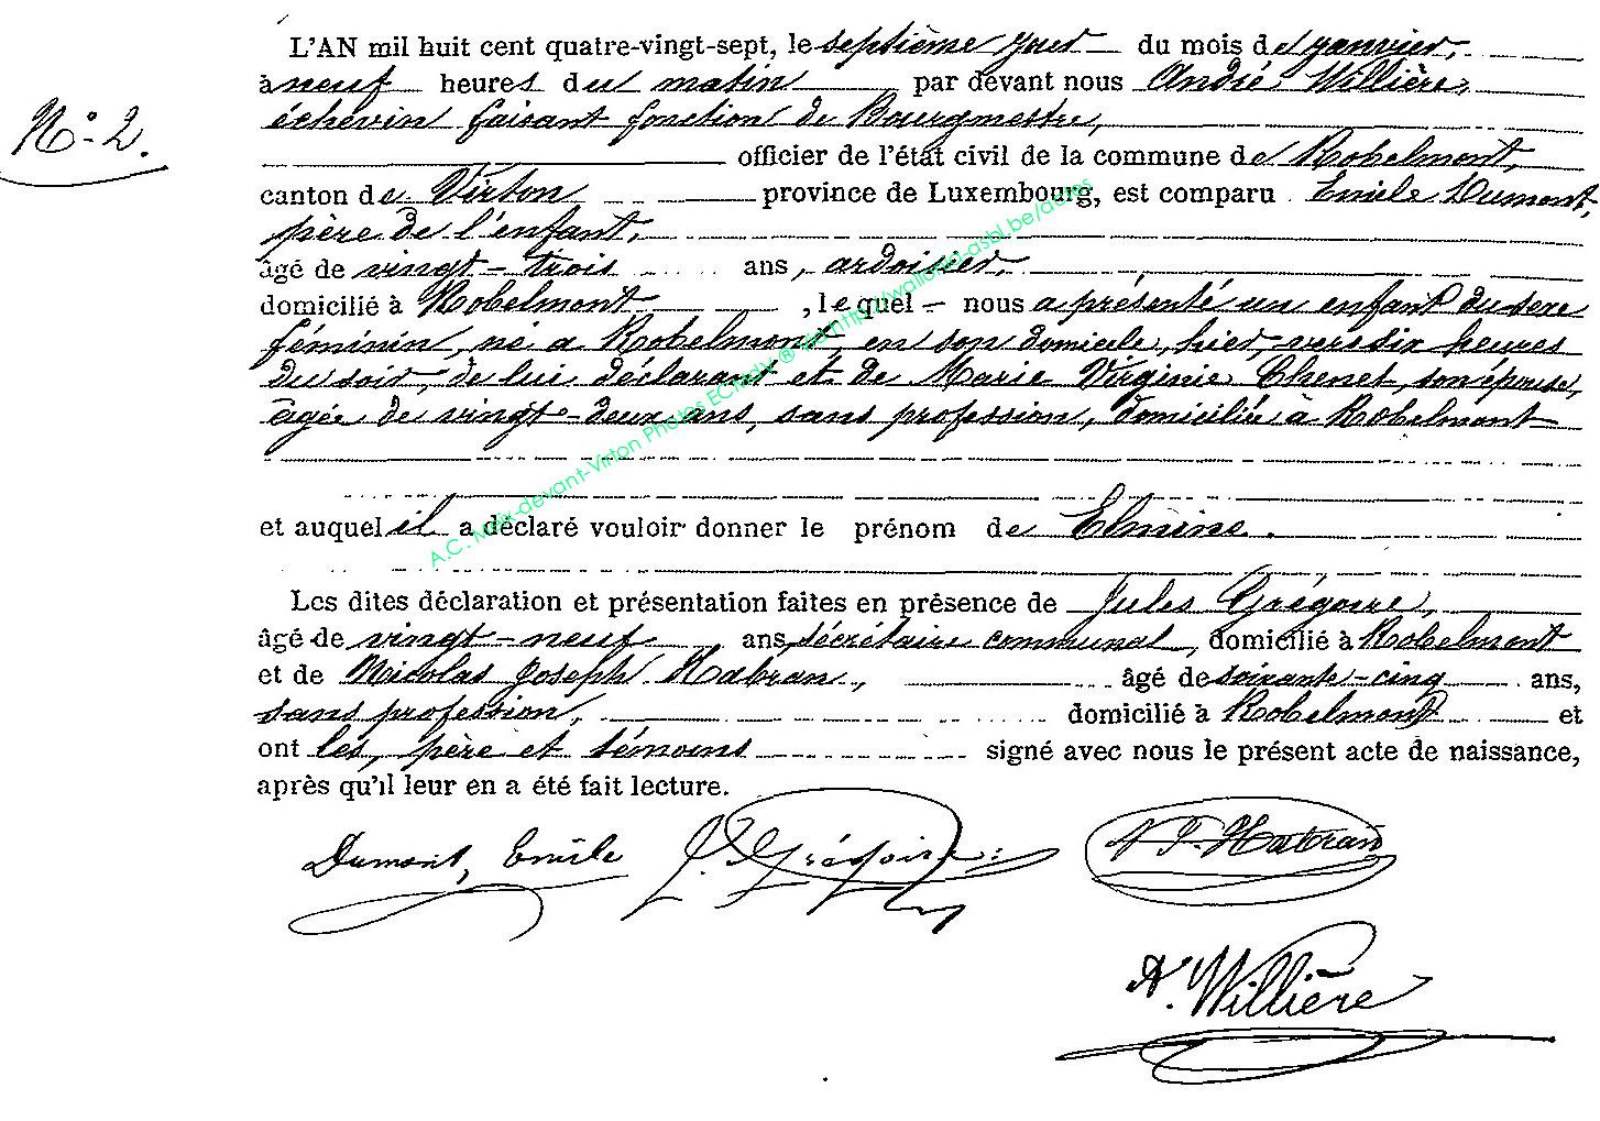 L'AN mil huit cent quatre-vingt-sept, le septième jour du mois de janvier,
à neuf heures du matin par devant nous André Willière,
N° 2.
échevin faisant fonction de Bourgmestre,
officier de l'état civil de la commune de Robelmont,
canton de Virton province de Luxembourg, est comparu Emile Dumont,
père de l'enfant,
âgé de vingt-trois ans, ardoisier,
domicilié à Robelmont, lequel nous a présenté un enfant du sexe
féminin, né à Robelmont, en son domicile, hier, vers six heures
du soir, de lui déclarant et de Marie Virginie Chenet, son épouse,
âgée de vingt-deux ans, sans profession, domiciliée à Robelmont
et auquel il a déclaré vouloir donner le prénom de Elmine.
Les dites déclaration et présentation faites en présence de Jules Grégoire,
âgé de vingt-neuf ans, secrétaire communal, domicilié à Robelmont
et de Nicolas Joseph Habran, âgé de soixante-cinq ans,
sans profession, domicilié à Robelmont et
ont les, père et témoins signé avec nous le présent acte de naissance,
après qu'il leur en a été fait lecture.
Dumont, Emile J. Grégoire N J. Habran
A. Willière
A.C. Meix-devant-Virton Photos ECRedy ® Via http://wallonia-asbl.be/actes